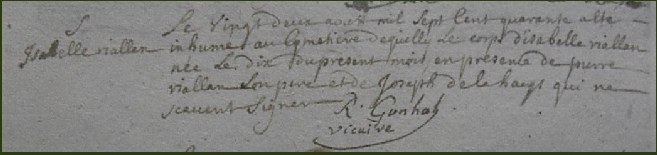 S
Isabelle riallan
Le vingt deux aout mil sept Cent quarante a été
inhumé au Cymetiere de quilly Le corps disabelle riallan
née Le dix du present mois en presence de pierre
riallan Son pere et de Joseph de la haye qui ne
scavent Signer
R. Gunhal
vicaire